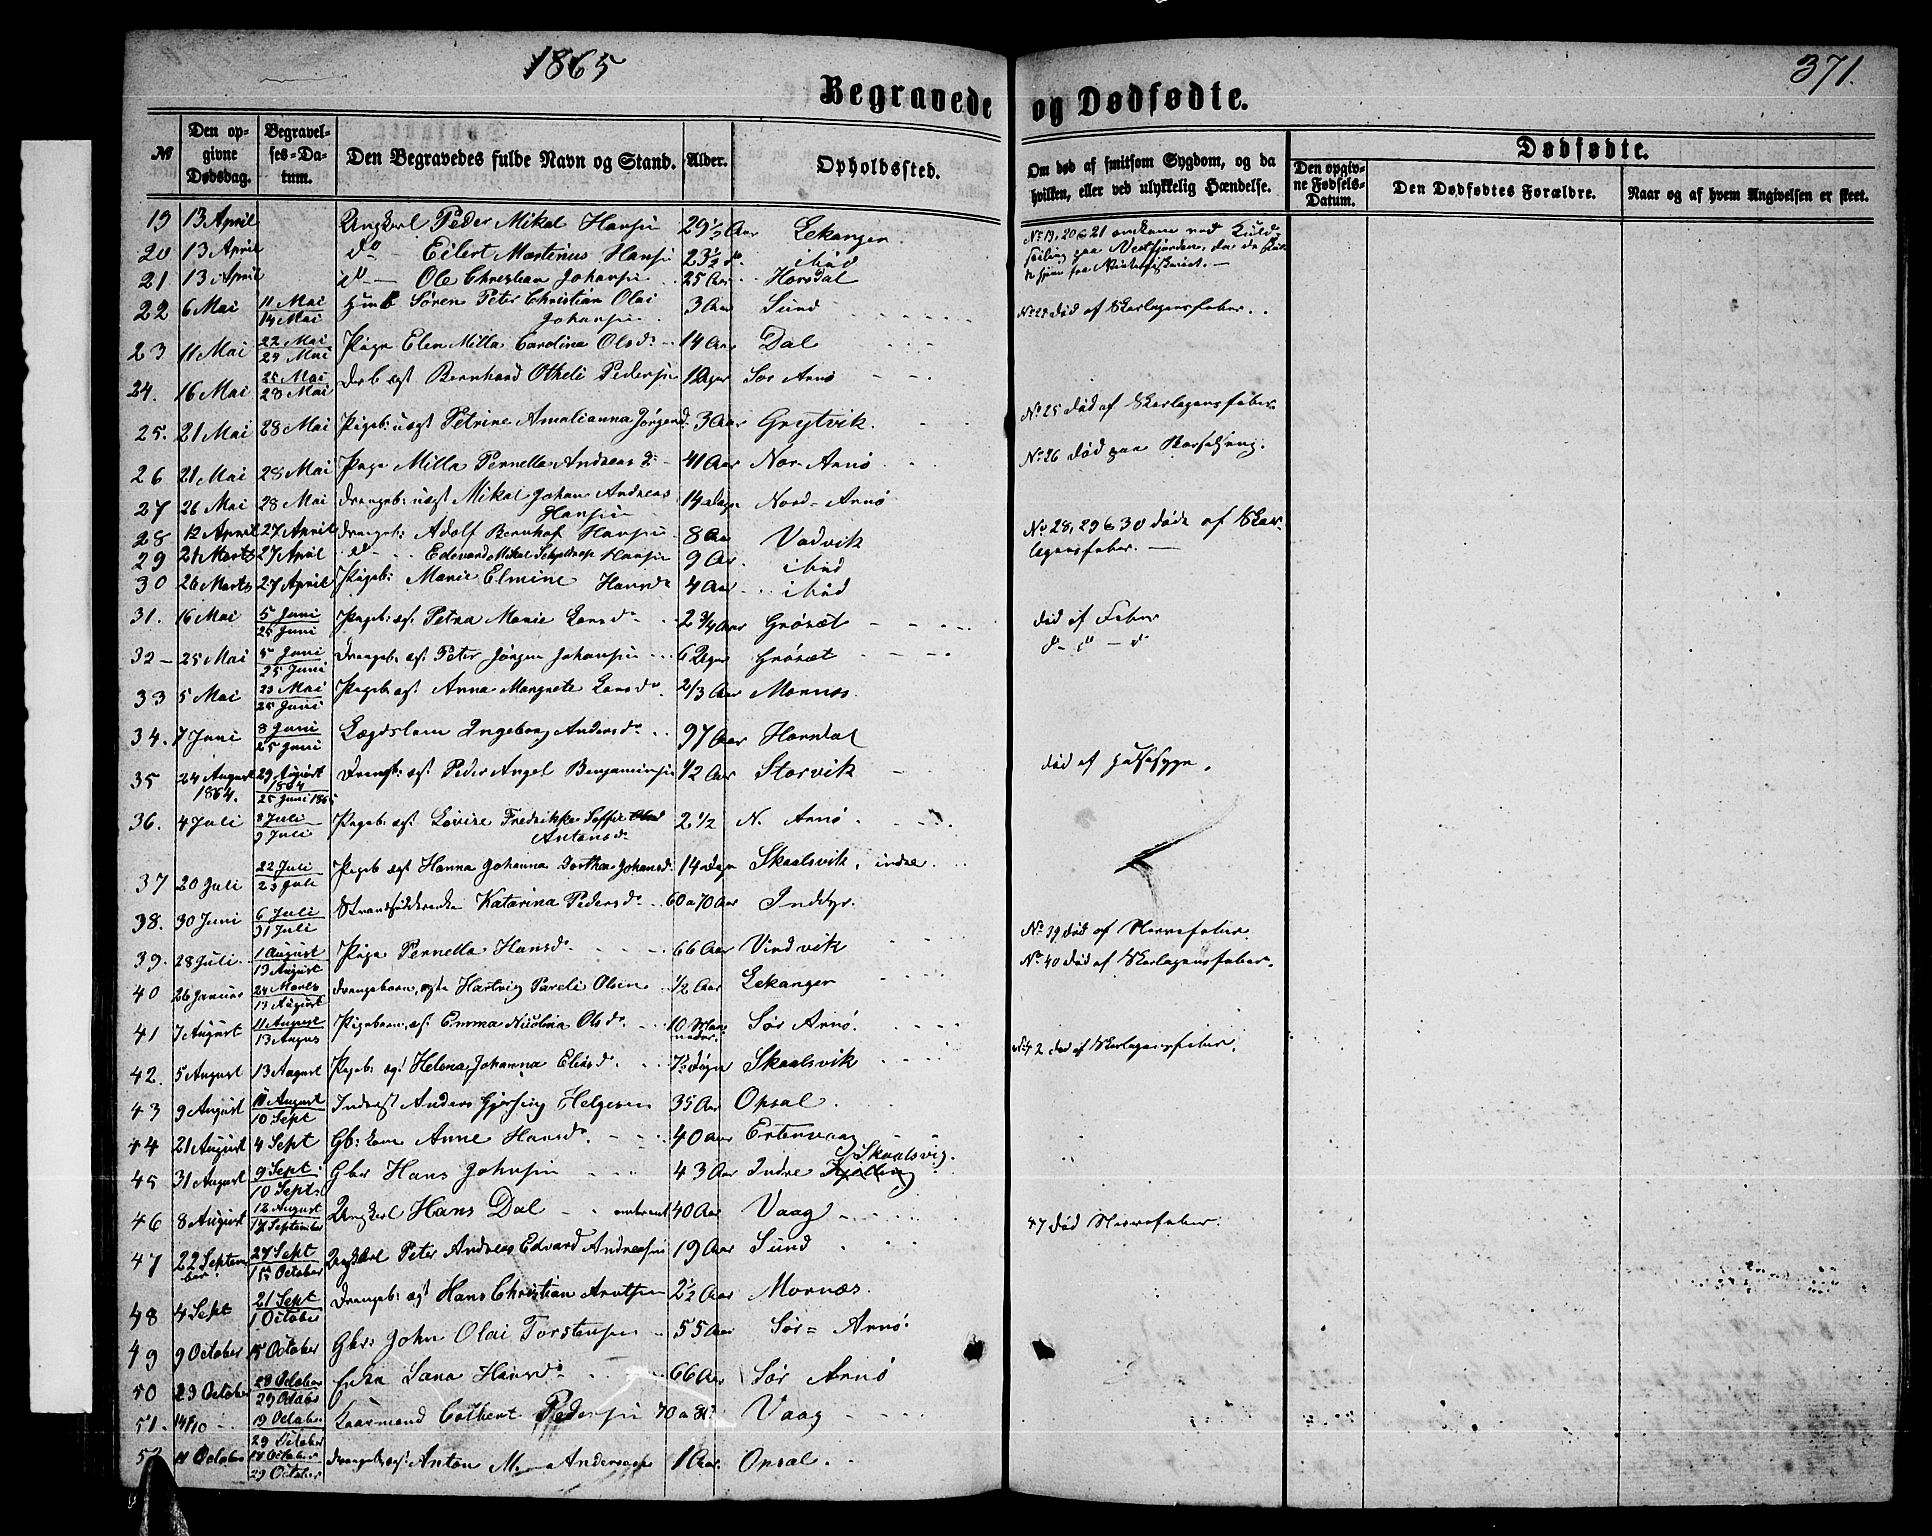 1865
371.
Begravede og Dødfødte.
№ | Den opgivne Dødsdag. | Begravelses-Datum. | Den Begravedes fulde Navn og Stand. | Alder. | Opholdssted. | Om død af smitsom Sygdom, og da hvilken, eller ved ulykkelig Hændelse. | Dødfødte.
Den opgivne Fødsels-Datum. | Den Dødfødtes Forældre. | Naar og af hvem Angivelsen er skeet.
19 13 April Ungkarl Peder Mikal Hansen 29½ Aar Lekanger. No 19, 20 & 21 omkom ved Kuldseiling paa Vestfjorden, da de
20 13 April do Eilert Martinus Hansen 23½ do ibid hjem fra Vinterfiskeriet.
21 13 April do Ole Christian Johansen 25 Aar Horsdal
22 6 Mai 11 Mai 14 Mai Søren Peter Christian Olai Johansen 3 Aar Sund No 22 død af Skarlagensfeber.
23 11 Mai 22 Mai 24 Mai Pige Elen Milla Carolina Olsd. 14 Aar Dal
24. 16 Mai 25 Mai 28 Mai Bernhard Otheli Pedersen Sør Arnø
25. 21 Mai 28 Mai Pigeb: uægt Petrine Amalianna Jørgensd. 3 Aar Grejtvik. No 25 død af Skarlagensfeber
26 21 Mai 28 Mai Pige Milla Pernella Andreas d. 41 Aar Nor Arnø No 26 død paa Barselseng.
27 26 Mai 28 Mai Drengeb: uægt Mikal Johan Andreas Hansen 14 Dage Nord-Arnø
28 12 April 27 April Drengeb: Adolf Bernhof Hansen 8 Aar Vadvik No 28, 29 & 30 døde af Skarlagensfeber.
29 27 April do Edevard Mikal Hansen 9 Aar. ibid
30 26 Marts 27 April Pigeb: Marie Elmine Hansd. 4 Aar ibid
31. 16 Mai 5 Juni 25 Juni Pigeb: æg: Petra Marie Larsd. 2 3/4 Aar Grøsæt død af Feber
32 25 Mai 5 Juni 25 Juni Drengeb. æg: Peter Jørgen Johansen 6 Dage Grøsæt
33 5 Mai 23 Mai 25 Juni Pigeb: æg: Anna Margrete Larsd. 2/3 Aar Mornæs.
34. 7 Juni 8 Juni 25 Juni Lægdslem Ingeborg Andersd. 97 Aar Horndal
35 24 August 1864. 29 August 1864 25 Juni 1865 Peder Angel Benjaminsen 1/2 Aar Storvik død af Halssyge.
36. 4 Juli 8 Juli 9 Juli Pigeb. ægt Lovise Fredrikke Soffie Antonsd. 2 1/2 N. Arnø.
37 20 Juli 22 Juli 23 Juli Pigeb ægt Hanna Johanna Dorthea Johansd. 14 Dage Skaalsvik, indre.
38. 30 Juni 6 Juli 31 Juli Strandsidderenke Katarina Pedersd. 60 a 70 Aar Inddyr.
39. 28 Juli. 1 August 13 August Pige Pernella Hansd. 66 Aar Vindvik No 39 død af Nervefeber.
40 26 Januar 24 Marts 13 August Drengebarn, ægte Hartvig Pareli Olsen 1/2 Aar Lekanger No 40 død af Skarlagensfeber.
41 7 August 11 August 13 Augus Pigebarn, æg: Emma Nicolina Olsd. 10 Maaneder. Sør Arnø.
42. 5 August 13 August Pigeb: ægt Helena Johanna Eliasd. Skaalsvik No 42 død af Skarlagensfeber.
43 9 August August 10 Sept Inderst Anders Gjersing Helgesen 35 Aar Opsal.
44 21 August 4 Sept Gb: kone Anne Hansd. 40 Aar Ertenvaag
45 31 August 9 Sept 10 Sept. Gbr Hans Johnsen 43 Aar Indre Skaalsvig.
46 8 August 12 August 17 September Ungkarl Hans Dal 40 Aar Vaag
47 22 September 27 Sept 15 October Ungkarl Peter Andreas Edvard Andreasen 19 Aar Sund 47 død Nervefeber.
48 4 Sept 21 Sept 1 October Drengeb: ægt Hans Christian Arntsen 2½ Aar Mornæs.
49 9 October 15 October Gbr: John Olai Torstensen 55 Aar Sør-Arnø.
50 23 October 28 October 29 Octobr Enke Lana Hansd. 66 Aar Sør Arnø
51. 14/10 19 October 29 October Kaarmand Pedersen Vaag
52 11 October 17 October 29 October Drengeb. æg: Anton M. Andersen 1 Aar. Opsal.